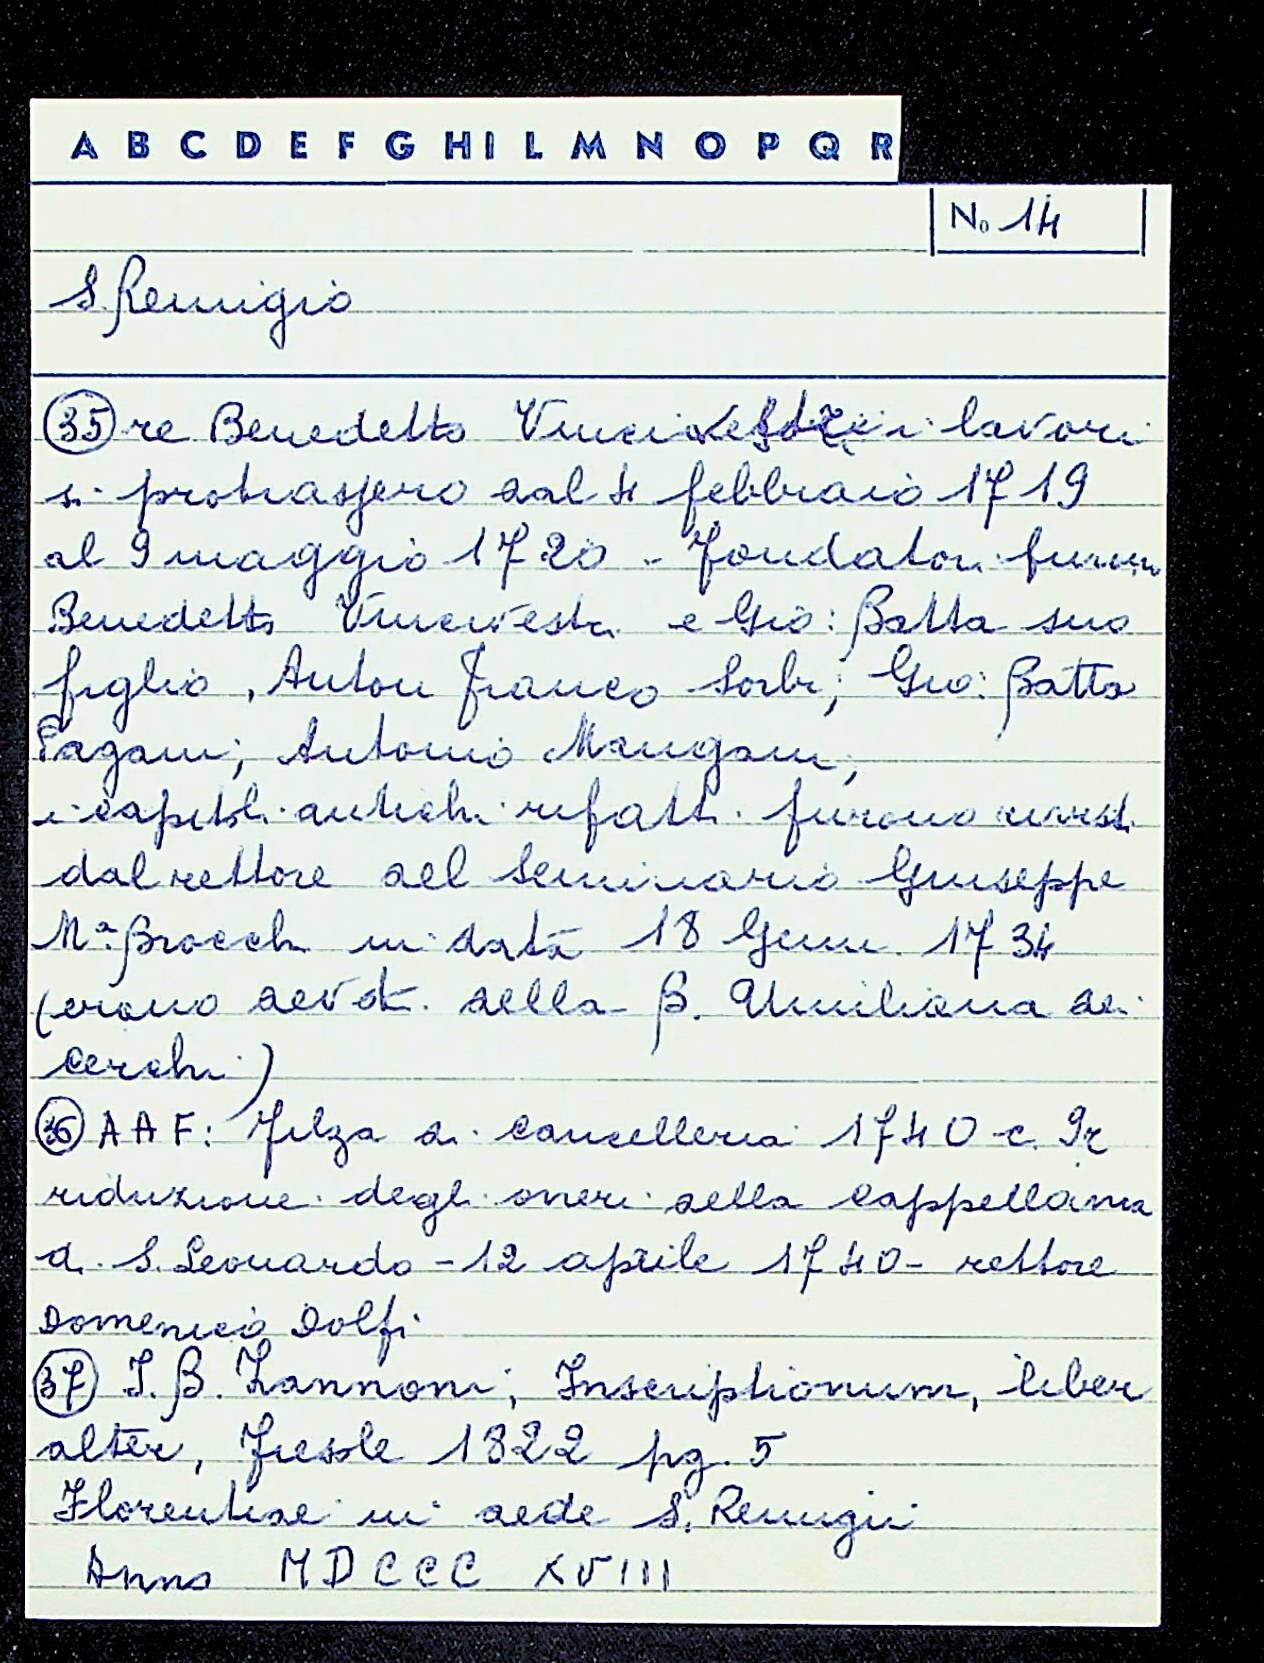 A B C D E F G H I L M N O P Q R
No 14
S. Remigio
35 re Benedetto Vincivesta: i lavori
si protrassero dal 4 febbraio 1719
al 9 maggio 1720 - Fondatori furono
Benedetto Vincivesta e Gio: Batta suo
figlio, Anton Franco Sorbi; Gio: Batta
Pagani; Antonio Mangani;
i capitoli antichi rifatti furono rivisti
dal rettore del Seminario Giuseppe
Mª Brocchi in data 18 Genn. 1734
(erano devoti della B. Umiliana dei
Cerchi)
36 AAF: Filza di Cancelleria 1740 c. 9r
riduzione degli oneri della Cappellania
di S. Leonardo - 12 aprile 1740 - rettore
Domenico Dolfi
37 I. B. Zannoni, Inscriptionum, liber
alter, Fiesole 1822 pg. 5
Florentiae in aede S. Remigii
Anno MDCCC XVIII